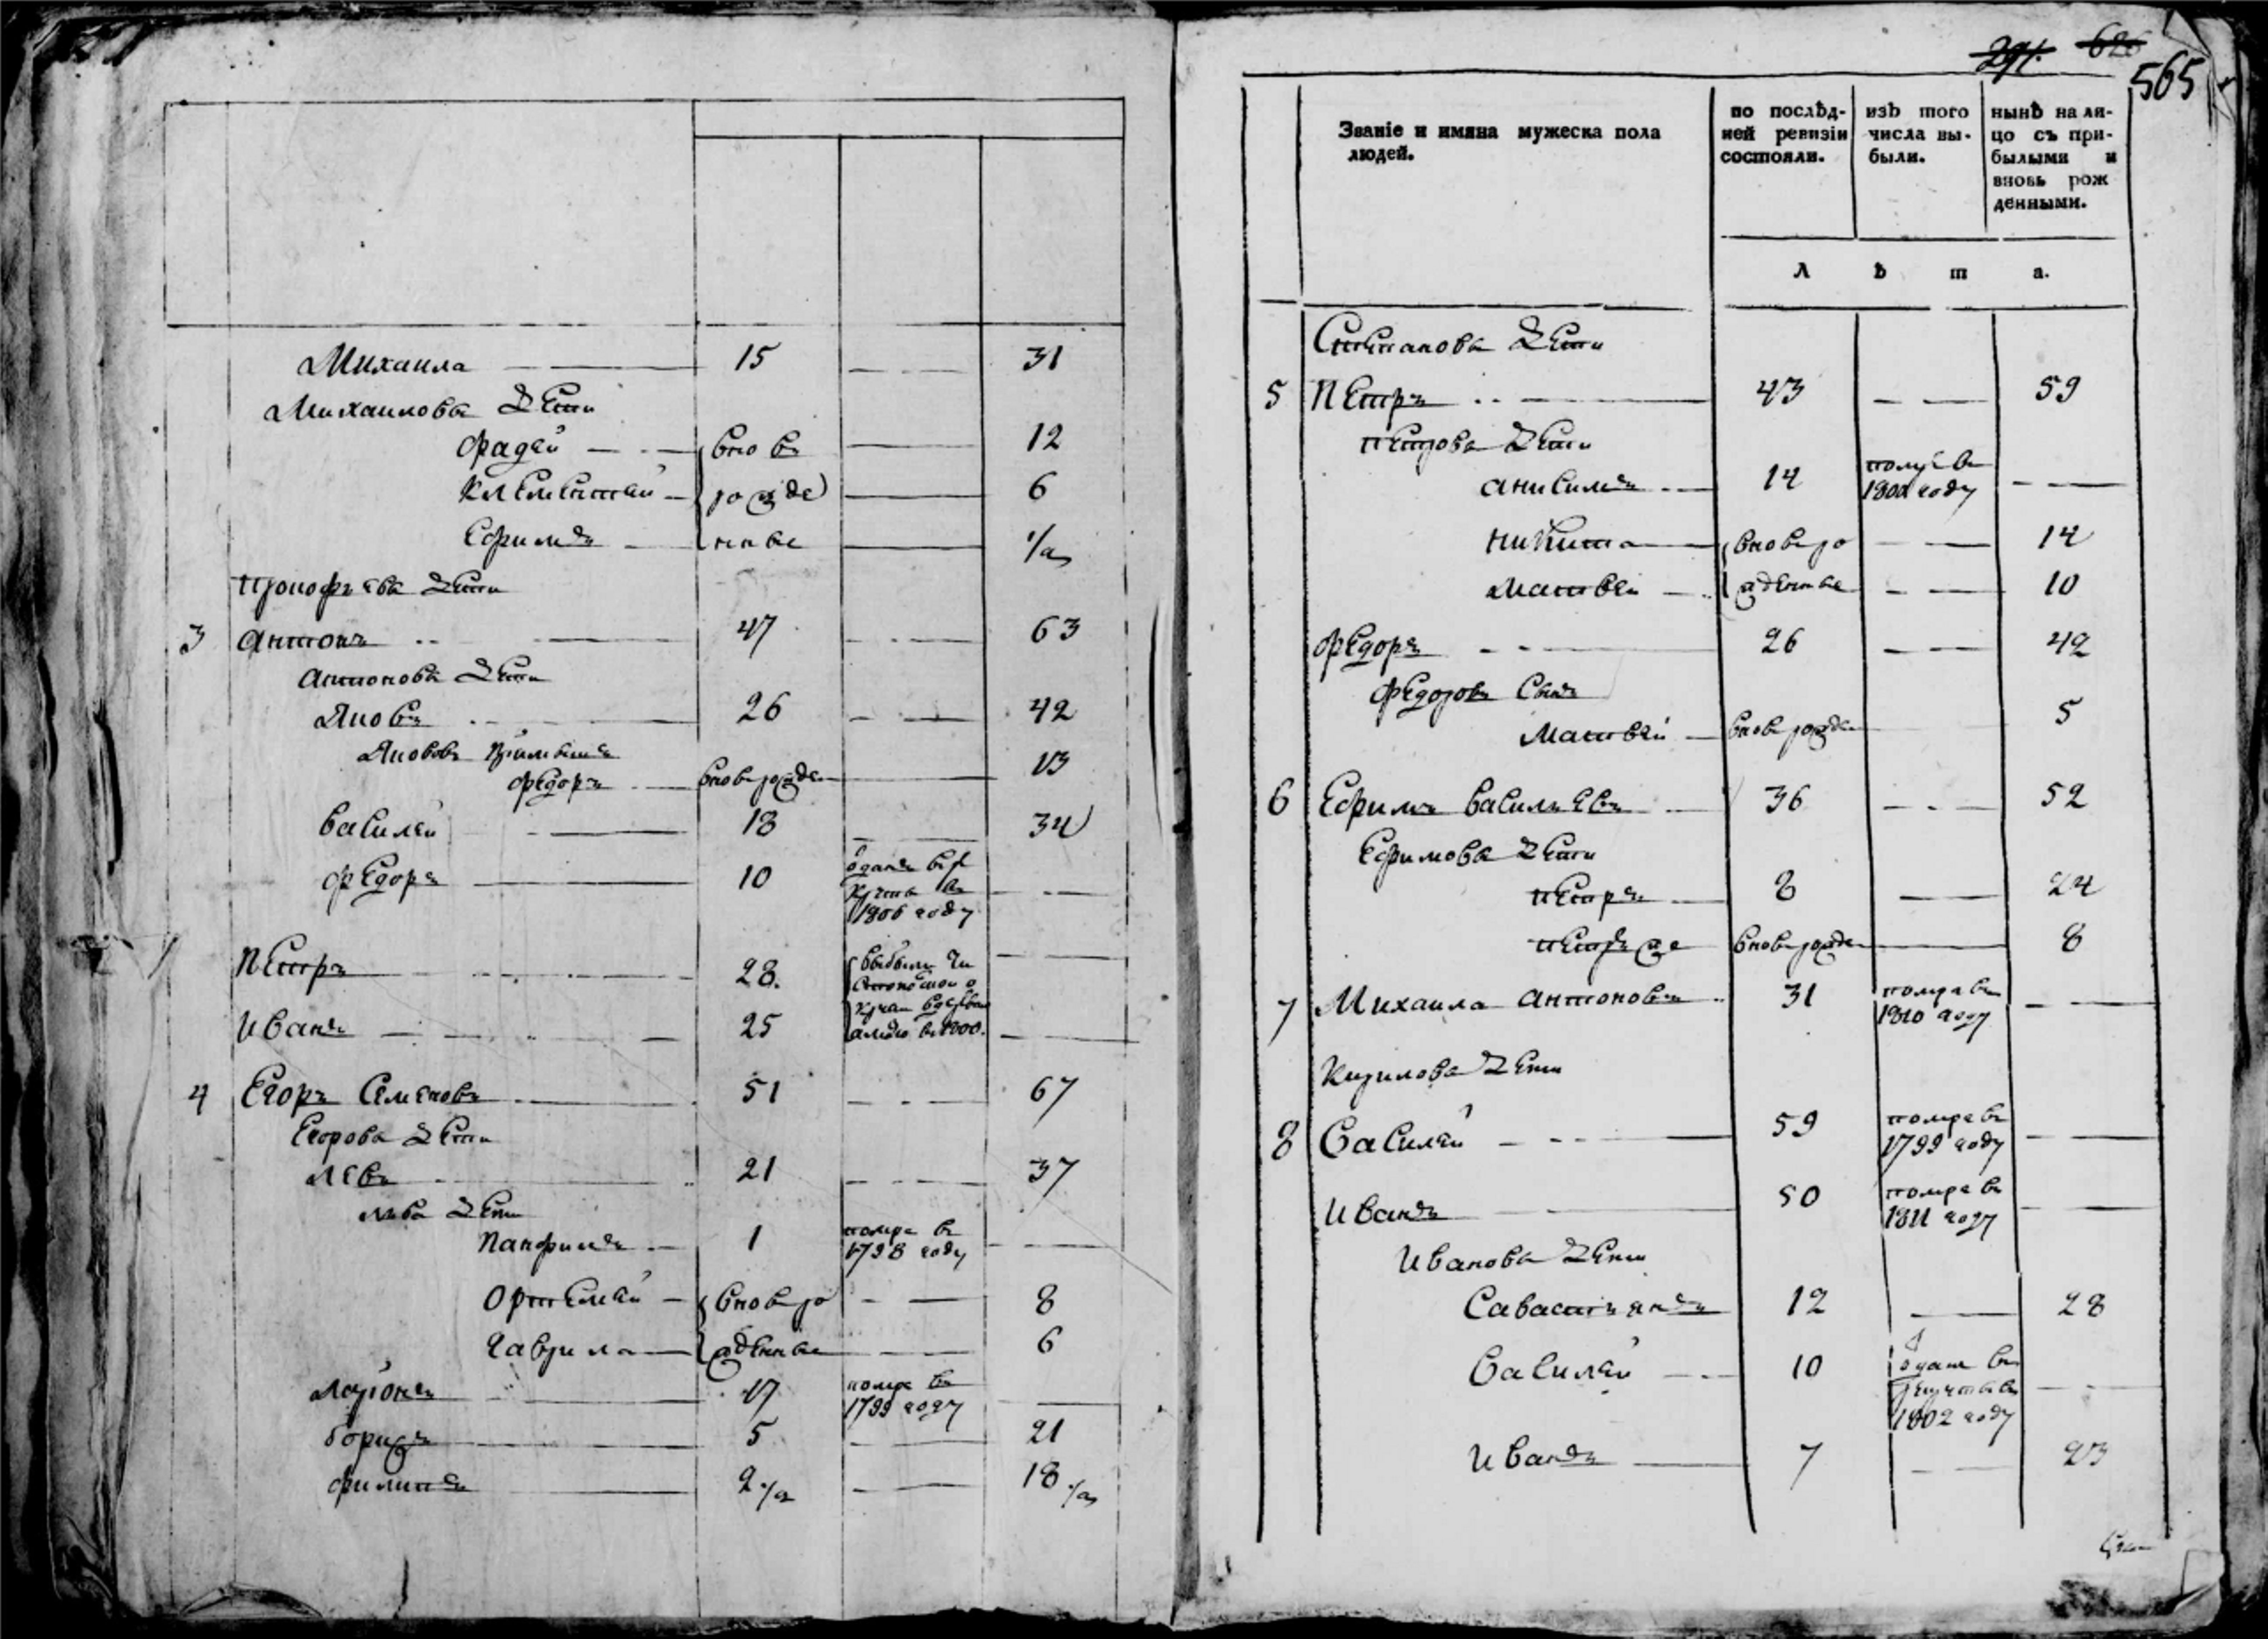 Михаила 15 31
Михаиловы дети
Фадей вновь 12
Климентий рожде 6
Ефимъ нные 1/2
Прокофьевы дети
3 Антонъ 47 63
Антоновы дети
Яковъ 26 42
Якововъ
Федоръ вновь рожден 13
Василей 18 34
Федоръ 10 отданъ въ ре
круты въ
1806 году
Петръ 28.
Иванъ 25
4 Егоръ Семеновъ 51 67
Егоровы дети
Левъ 21 37
Львы дети
Панфилъ 1 помре въ
1798 году
Ортемей вновь ро 8
Гаврила жденные 6
Ларіонъ 17 помре въ
1799 году
Борисъ 5 21
Филипъ 2 1/2 18 1/2
291. 626
565
Званіе и имяна мужеска пола
людей.
по послѣд-
ней ревизіи
состояли.
изъ того
числа вы-
были.
нынѣ на ли-
цо съ при-
былыми и
вновь рож
денными.
Л ѣ т а.
Степановы дети
5 Петръ 43 59
Петровы дети
Анисимъ 14 помре въ
1800 году
Никита вновь ро 14
Матвей жденные 10
Федоръ 26 42
Федоровъ сынъ
Матвей вновь рожден 5
6 Ефимъ Васильевъ 36 52
Ефимовы дети
Петръ 8 24
Петръ же вновь рожден 8
7 Михаила Антоновъ 31 помре въ
1810 году
Кириловы дети
8 Василей 59 помре въ
1799 году
Иванъ 50 помре въ
1811 году
Ивановы дети
Савастьянъ 12 28
Василей 10 отданъ въ
рекруты въ
1802 году
Иванъ 7 23